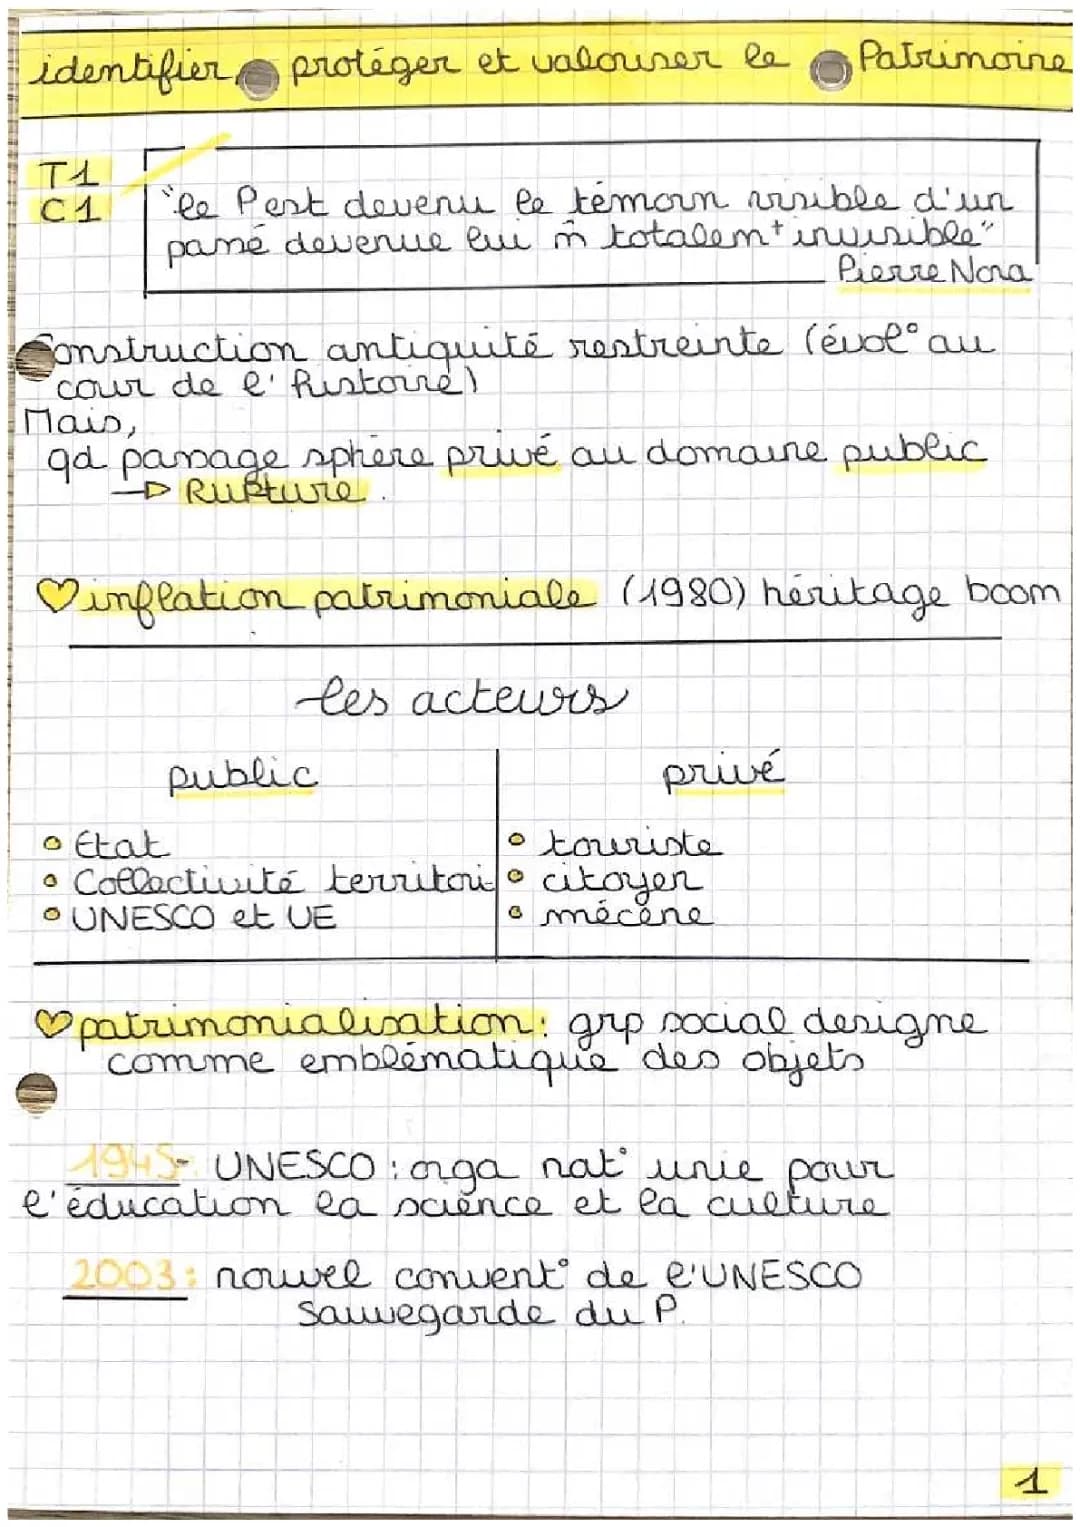 identifier, protéger et valoriser le Patrimoine
T1
C1
"le P est devenu le témoin visible d'un
passé devenue lui m̂ totalem⁺ invisible"
Pierre Nora
Construction antiquité restreinte (évol° au
cour de l'histoire)
Mais,
qd passage sphère privé au domaine public
→ Rupture.
♡ inflation patrimoniale (1980) héritage boom
les acteurs
public
privé
• Etat
• Collectivité territori
• UNESCO et UE
• touriste
• citoyen
• mécène
♡ patrimonialisation: grp social designe
comme emblématique des objets
1945- UNESCO: orga nat° unie pour
l'éducation la science et la culture
2003: nouvel convent° de l'UNESCO
Sauvegarde du P.
1